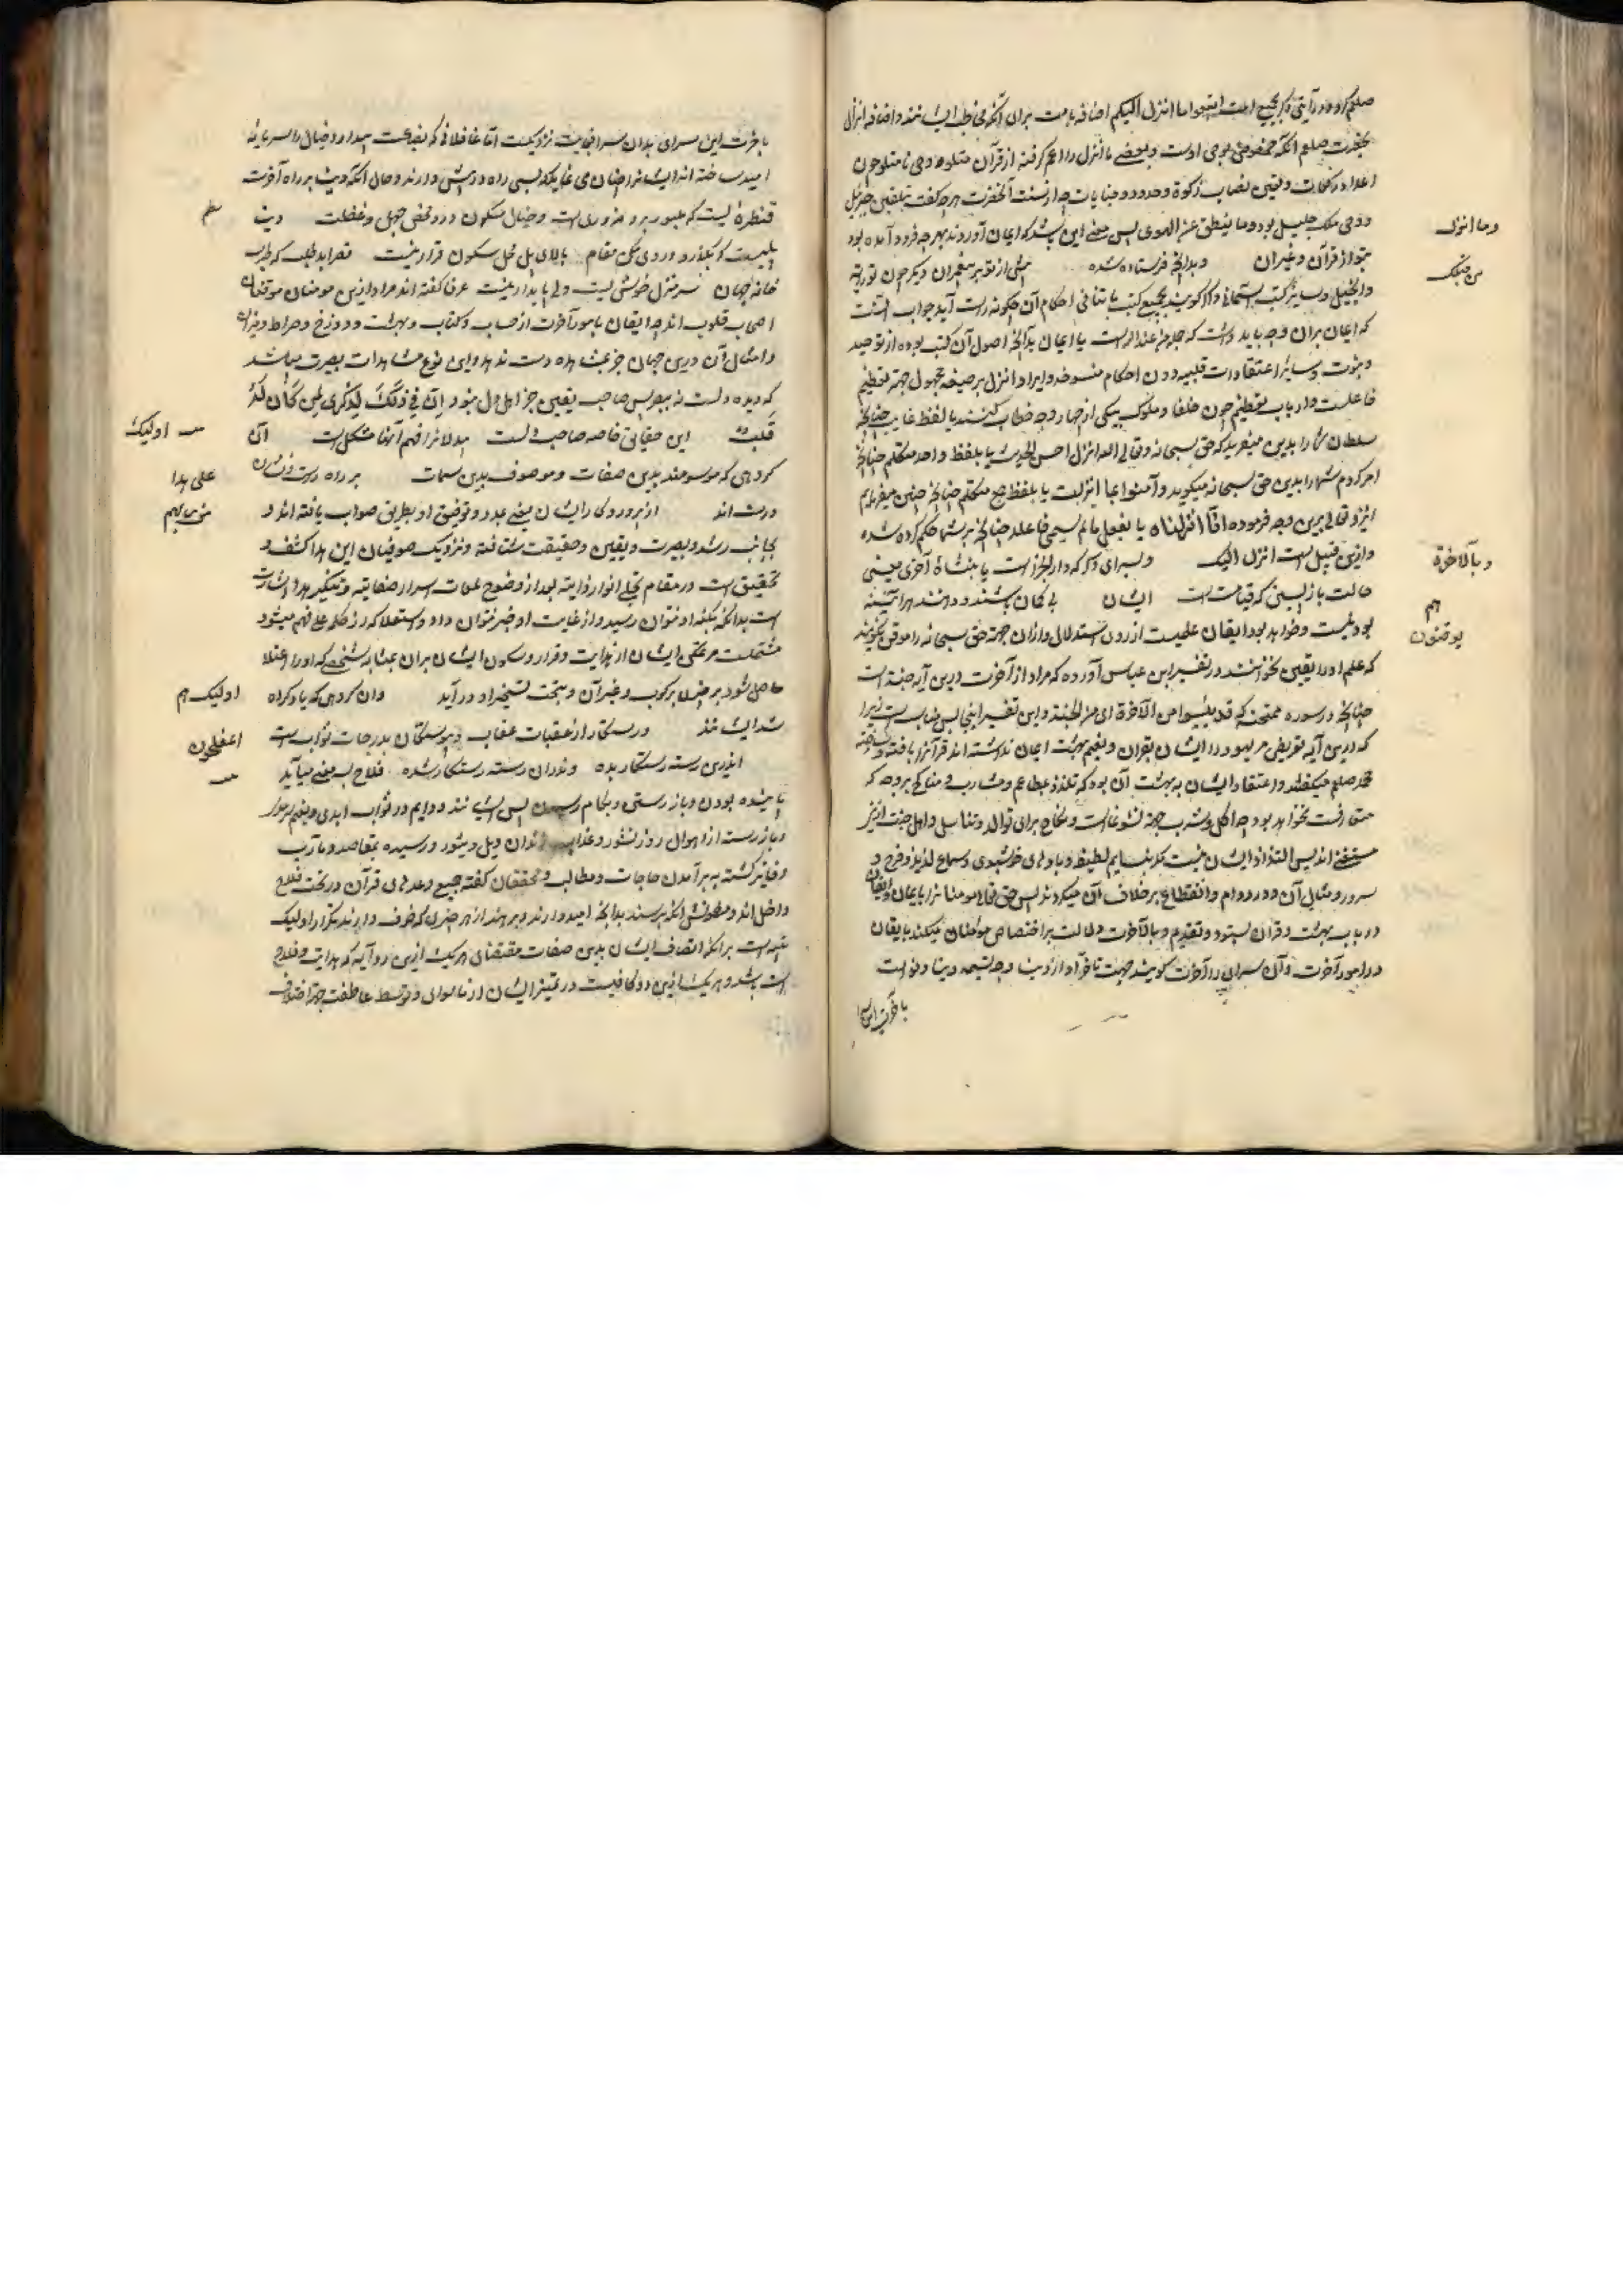 صلعم کرد و در آیتی دیگر بجمیع امت اتبعوا ما انزل الیکم اضافه بامت برای آنکه مخاطب ایشانند و اضافه انزال
بحضرت صلعم آنکه مخصوص بوحی اوست و بعضی ما انزل را اعم گرفته از قرآن متلو و وحی نامتلو چون
اعداد رکعات و تعین نصاب زکوة و حدود و جنایات چه از سنت آنحضرت هرچه گفت بتلقین جبرئیل
و وحی ملک جلیل بود و ما ینطق عن الهوی پس معنی این باشد که ایمان آوردند بهرچه فرود آمده بود
وما انزل
بتو از قرآن و غیر آن وبدانچه فرستاده شده پیش از تو بر پیغمبران دیگر چون توریة
من قبلک
و انجیل و سایر کتب آسمانی و اگر گویند بجمیع کتب با تنافی احکام آن چگونه راست آید جواب آنست
که ایمان بران وجه باید داشت که جمله من عند الله است یا ایمان بدانچه اصول آن کتب بوده از توحید
و نبوت و سایر اعتقادات قلبیه دون احکام منسوخه و ایراد انزل بر صیغه مجهول جهة تعظیم
فاعلست و ارباب تعظیم چون خلفا و ملوک بیکی از چهار وجه خطاب کنند یا لفظ غایب چنانچه
سلطان شما را بدین میفرماید که حق سبحانه وتعالی الله انزل احسن الحدیث یا بلفظ واحد متکلم چنانچه
امر کردم شما را بدین حق سبحانه میگوید و آمنوا بما انزلت یا بلفظ جمع متکلم چنانچه چنین میفرمایم
ایزد تعالی برین وجه فرموده انا انزلناه یا بفعل مالم یسمی فاعله چنانچه بر شما حکم کرده شده
و ازین قبیل است انزل الیک وبسرای دیگر که دار الجزاست یا بنشأة آخری یعنی
وبالاخرة
حالت بازپسین که قیامت است ایشان بی گمان باشند و دانند هر آینه
هم
بودنیست و خواهد بود ایقان علمیست از روی استدلال و ازان جهة حق سبحانه را موقن نگویند
یوقنون
که علم او را یقین نخوانند در تفسیر ابن عباس آورده که مراد از آخرت درین آیه جنة است
چنانچه در سوره ممتحنه که قد یئسوا من الآخرة ای من الجنة و این تفسیر اینجا بس مناسب است زیرا
که درین آیه تعریض مر یهود را ایشان بقرآن و نعیم بهشت ایمان نداشته اند قرآنرا بافته و ساخته
محمد صلعم میگفتند و اعتقاد ایشان به بهشت آن بود که تلذذ بمطاعم و مشارب و مناکح بر وجه که
متعارفست نخواهد بود چه اکل و شرب جهة نشو و نماست و نکاح برای توالد و تناسل و اهل جنت ازینها
مستغنی اند پس التذاذ ایشان نیست مگر بنسایم لطیف و بادهای خوشبوی و سماع لذیذ و فرح و
سرور و مثال آن و در دوام و انقطاع بر خلاف آن میکردند پس حق تعالی مومنانرا بایمان و ایقان
در باب بهشت و قرآن بستود و تقدیم و بالآخرت دلالت بر اختصاص مؤمنان میکند بایقان
در امور آخرت و آن سرای را آخرت گویند جهت تاخر او از دنیا وجه تسمیه دنیا دنو است
با خرت این سرا
باخرت این سرای بدان سرا بغایت نزدیکست اما غافلانی که بضاعت پندار و خیال را سرمایه
امید ساخته اند ایشانرا چنان می نماید که بسی راه در پیش دارند و حال آنکه دنیا بر راه آخرت
قنطره ایست که عبور برو ضروری است و خیال سکون درو محض جهل و غفلت دنیا
نظم
پلیست که بگذر و دروی مکن مقام بالای پل محل سکون و قرار نیست قصر ابد طلب که طرب
خانه جهان سر منزل خوشی است ولی پایدار نیست عرفا گفته اند مراد ازین مومنان موقنان
اصحاب قلوب اند چه ایقان بامور آخرت از حساب و کتاب و بهشت و دوزخ و صراط و میزان
و امثال آن درین جهان جز بمشاهده دست ندهد و این نوع مشاهدات بصیرت میباشد
که دیده دلست نه ببصر پس صاحب یقین جز اهل دل نبود ان فی ذلک لذکری لمن کان له
قلب این حقایق خاصه صاحب دلست بیدلانرا فهم آنها مشکل است آن
اولیک
گروهی که موسومند بدین صفات و موصوف بدین سمات بر راه راست و نشان
علی هدا
درست اند از پروردگار ایشان یعنی بمدد و توفیق او بطریق صواب یافته اند و
من ربهم
بجانب رشد و بصیرت و یقین و حقیقت شتافته و نزدیک صوفیان این هدا کشف و
تحقیق است در مقام تجلی انوار ذاتیه بعد از وضوح لمعات اسرار صفاتیه و تنکیر هدا اشارت
است بدانکه بکنه او نتوان رسید و از غایت او خبر نتوان داد و استعلا که از کلمه علی فهم میشود
مشتملست مر تمکن ایشان از هدایت و قرار و سکون ایشان بران بمثابه شخصی که او را اعتلا
حاصل شود بر چیزی برکوب و غیر آن و بتحت تسخیر او در آید وان گروهی که یاد کرده
اولیک هم
شد ایشانند ورستگار از عقبات عقاب وپیوستگان بدرجات ثواب است
المفلحون
ازین رسته رستگار بده و نذران رسته رستگار شده فلاح بسه معنی میآید
پاینده بودن و باز رستن و بکام رسیدن پس ایشانند دایم در ثواب ابدی و نعیم سرور
و باز رسته از اهوال روز نشور و عذاب نیران ویل و ثبور و رسیده بمقاصد و مآرب
و فایز گشته به برآمدن حاجات و مطالب و محققان گفته جمیع وعدهای قرآن در تحت فلاح
داخل اند و مفلحونش آنکه برسند بدانچه امید دارند و برهند از هر چیزی که خوف دارند تکرار اولیک
تنبیه است برانکه اتصاف ایشان بدین صفات مقتضای هر یک ازین دو آیه که هدایت و فلاح
است باشد و هر یک ازین دو کافیست در تمییز ایشان از ماسوای و توسط عاطفت جهة اختلاف